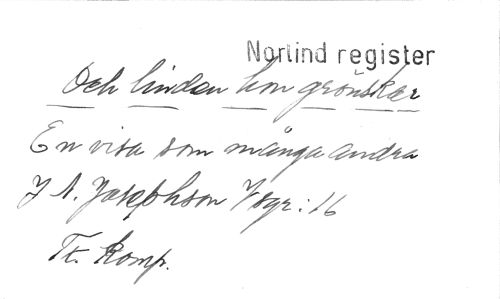 Norlind register
Och linden hon grönskar
En visa som många andra
J A. Josephson Vsgr: 16
Tr. komp.